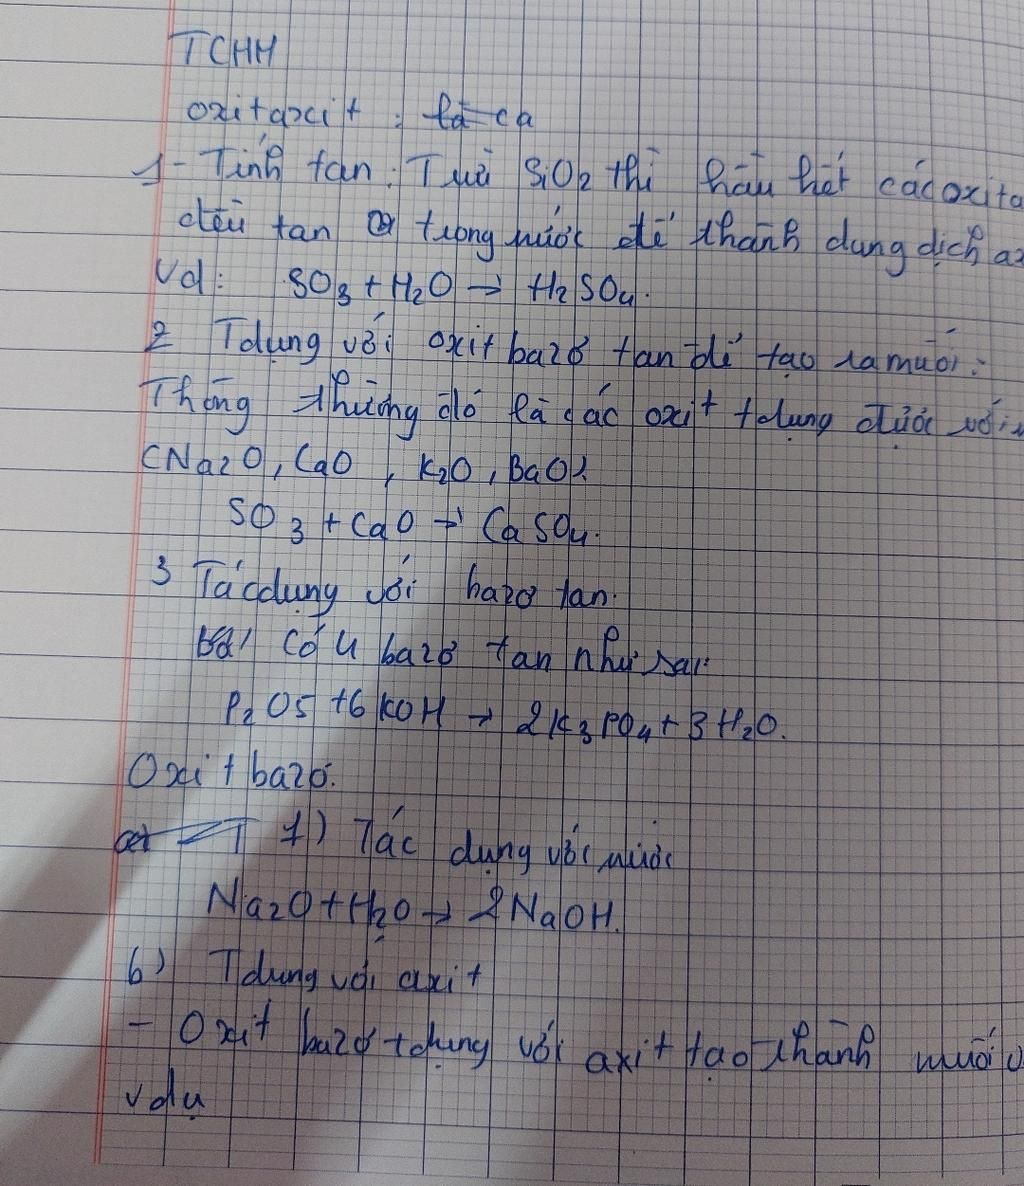 TCHH
oxitaxit : là ca
1- Tính tan: Trừ SiO2 thì hầu hết các oxita
đều tan trong nước để thành dung dịch ax
Vd: SO3 + H2O → H2SO4.
2 Tdụng với oxit bazơ tan để tạo ra muối:
Thông thường đó là các oxit tdụng được với
(Na2O, CaO, K2O, BaO)
SO3 + CaO → CaSO4.
3 Tác dụng với bazơ tan.
Vd: Có 4 bazơ tan như sau:
P2O5 + 6KOH → 2K3PO4 + 3H2O.
Oxit bazơ.
1) Tác dụng với nước
Na2O + H2O → 2NaOH.
b) Tdụng với axit
- Oxit bazơ tdụng với axit tạo thành muối v
vdụ